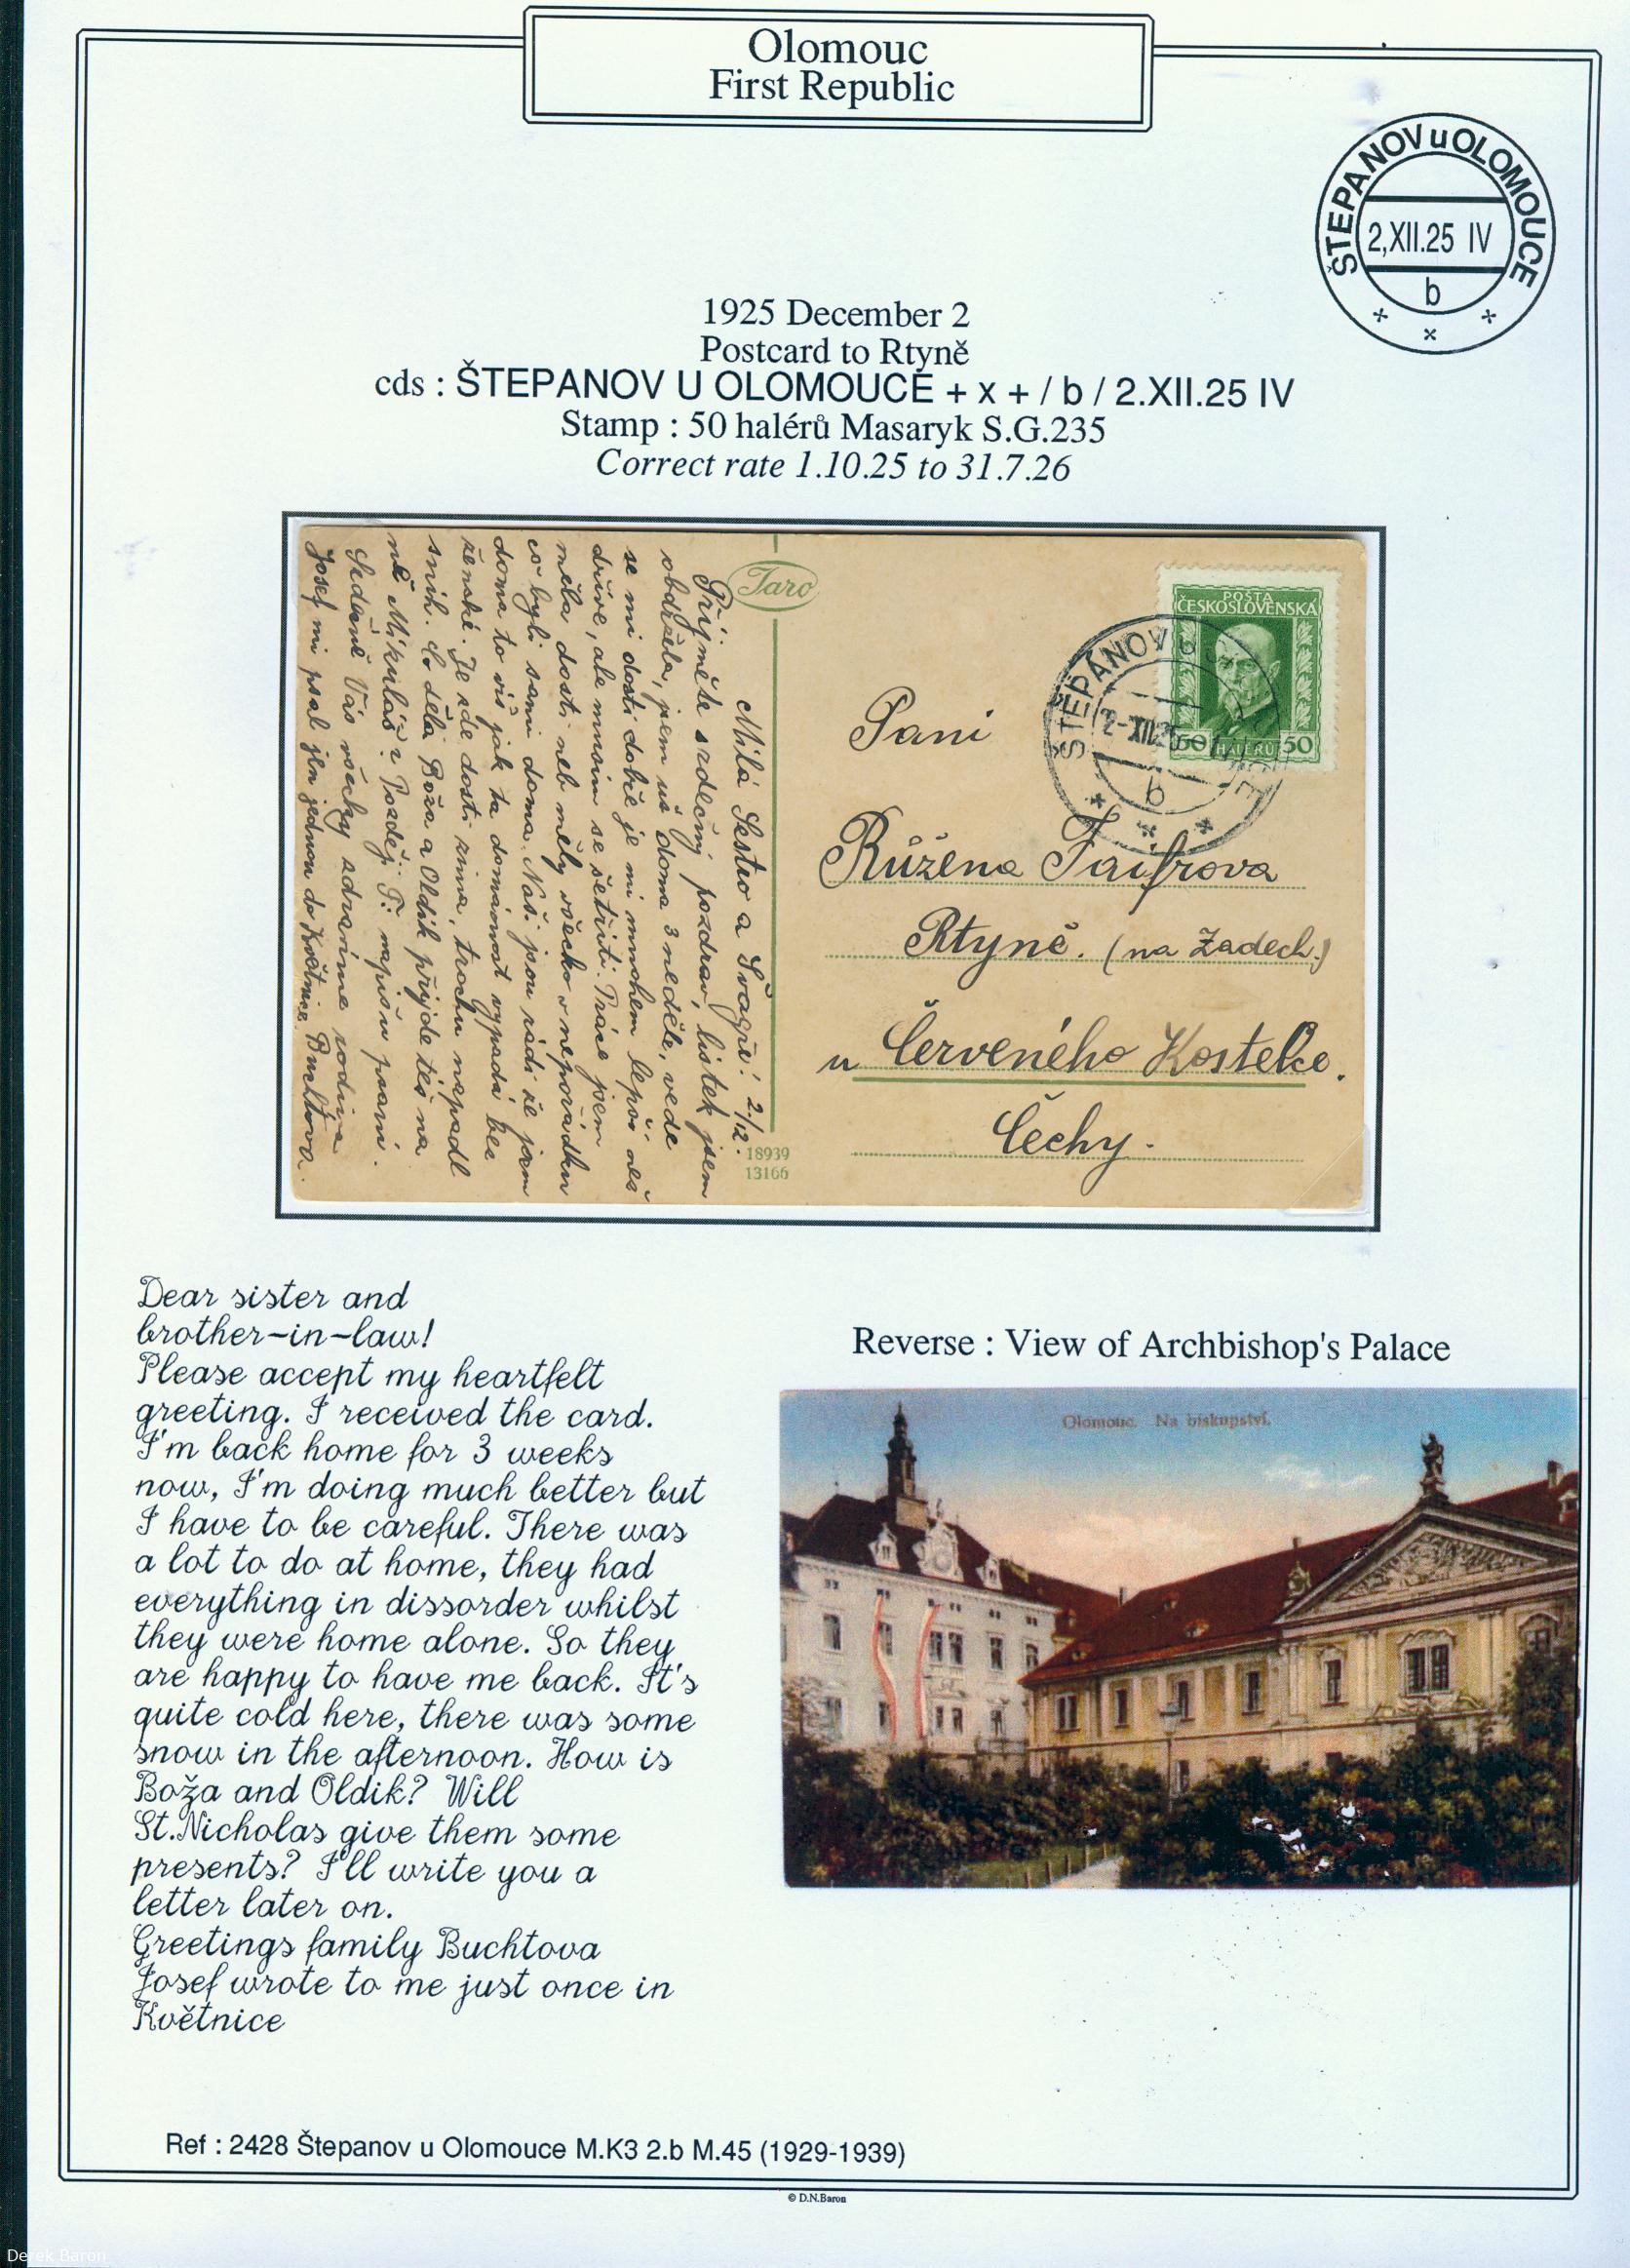 Olomouc
First Republic
ŠTEPANOV u OLOMOUCE
2,XII.25 IV
b
+ x +
1925 December 2
Postcard to Rtyně
cds : ŠTEPANOV U OLOMOUCE + x + / b / 2.XII.25 IV
Stamp : 50 halérů Masaryk S.G.235
Correct rate 1.10.25 to 31.7.26
Taro
POŠTA
ČESKOSLOVENSKÁ
50 HALÉŘŮ 50
ŠTĚPÁNOV U
2-XII.
b
Milá Sestro a Švagře! 2./12.
Přijměte srdečný pozdrav, lístek jsem
obdržela, jsem už doma 3 neděle, vede
se mi dosti dobře je mi mnohem lepší než
dříve, ale musím se šetřiti. Práce jsem
měla dosti neb měly všecko v nepořádku
co byli sami doma. Naši jsou rádi že jsem
doma to víš jak ta domácnost vypadá bez
ženské. Je zde dosti zima, trochu napadl
sníh. Co dělá Boža a Oldík přijde též na
ně Mikuláš? Později Ti napíšu psaní.
Srdečně Vás všecky zdravíme rodina
Josef mi psal jen jednou do Květnice. Buchtova.
Paní
Růžena Faifrova
Rtyně. (na Zadech.)
u Červeného Kostelce.
Čechy.
18939
13166
Dear sister and
brother-in-law!
Please accept my heartfelt
greeting. I received the card.
I'm back home for 3 weeks
now, I'm doing much better but
I have to be careful. There was
a lot to do at home, they had
everything in dissorder whilst
they were home alone. So they
are happy to have me back. It's
quite cold here, there was some
snow in the afternoon. How is
Boža and Oldik? Will
St.Nicholas give them some
presents? I'll write you a
letter later on.
Greetings family Buchtova
Josef wrote to me just once in
Květnice
Reverse : View of Archbishop's Palace
Olomouc. Na biskupství.
Ref : 2428 Štepanov u Olomouce M.K3 2.b M.45 (1929-1939)
© D.N.Baron
Derek Baron